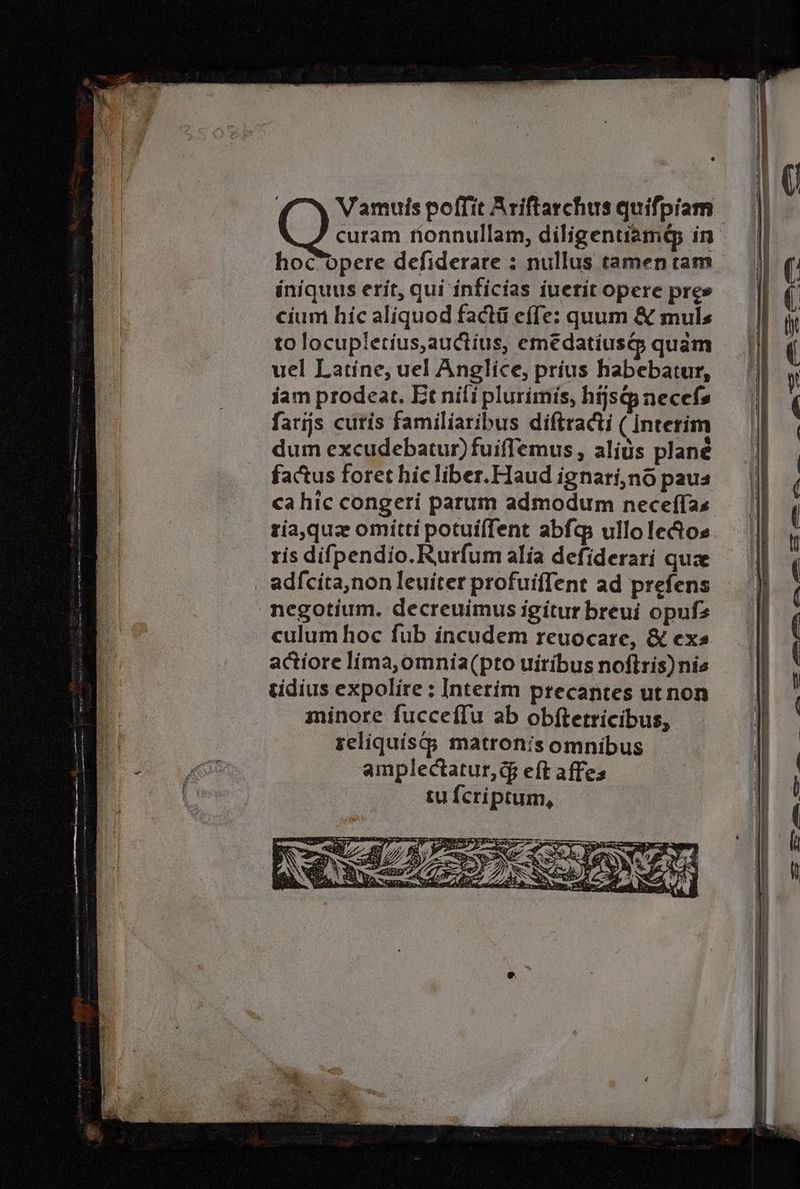 QVamuis poſſit Ariſtarchus quiſpíam
curam nonnullam, diligentiamqꝫ in
hoc opere deſiderare : nullus tamen tam
íníquus erít, quí ínfícías íuerít opere pre⸗
cíum híc alíquod factū eſſe: quum & mul⸗
to locupletíus,auctíus, emēdatíusqꝫ quàm
uel Latíne, uel Anglíce, príus habebatur,
íam prodeat. Et níſi plurimís, híjsqꝫ neceſ⸗
ſarijs curís famílíaribus díſtracti ( ínterím
dum excudebatur) fuíſſemus, alíùs planè
factus foret híc líber. Haud ígnarí, nō pau⸗
ca híc congerí parum admodum neceſſa⸗
ría,quæ omíttí potuíſſent abſqꝫ ullo lecto⸗
rís díſpendío. Rurſum alía deſíderarí quæ
adſcíta,non leuíter profuíſſent ad preſens
negotíum. decreuímus ígítur breuí opuſ⸗
culum hoc ſub íncudem reuocare, & ex⸗
actíore líma,omnía(pro uíríbus noſtrís) ni⸗
tídíus expolíre : Interím precantes ut non
mínore ſucceſſu ab obſtetrícíbus,
relíquísqꝫ matronís omníbus
amplectatur, ꝙ̃ eſt affe⸗
tu ſcríptum,